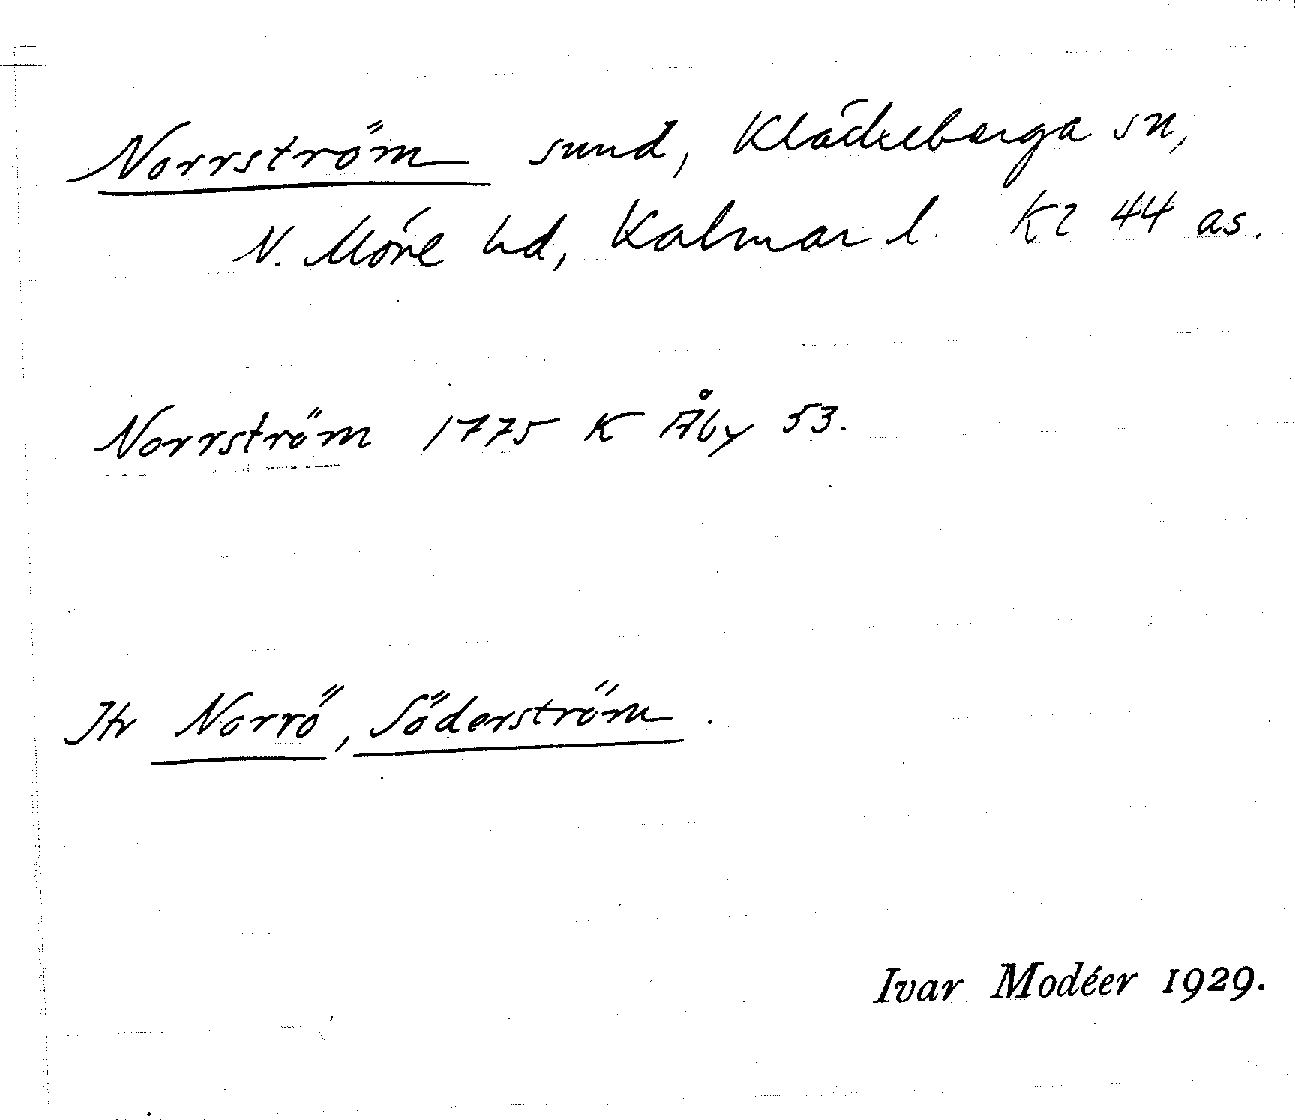 Norrström sund, Kläckeberga sn,
N. Möre hd, Kalmar l. K2 44 as.
Norrström 1775 K Åby 53.
Jfr Norrö, Söderström.
Ivar Modéer 1929.